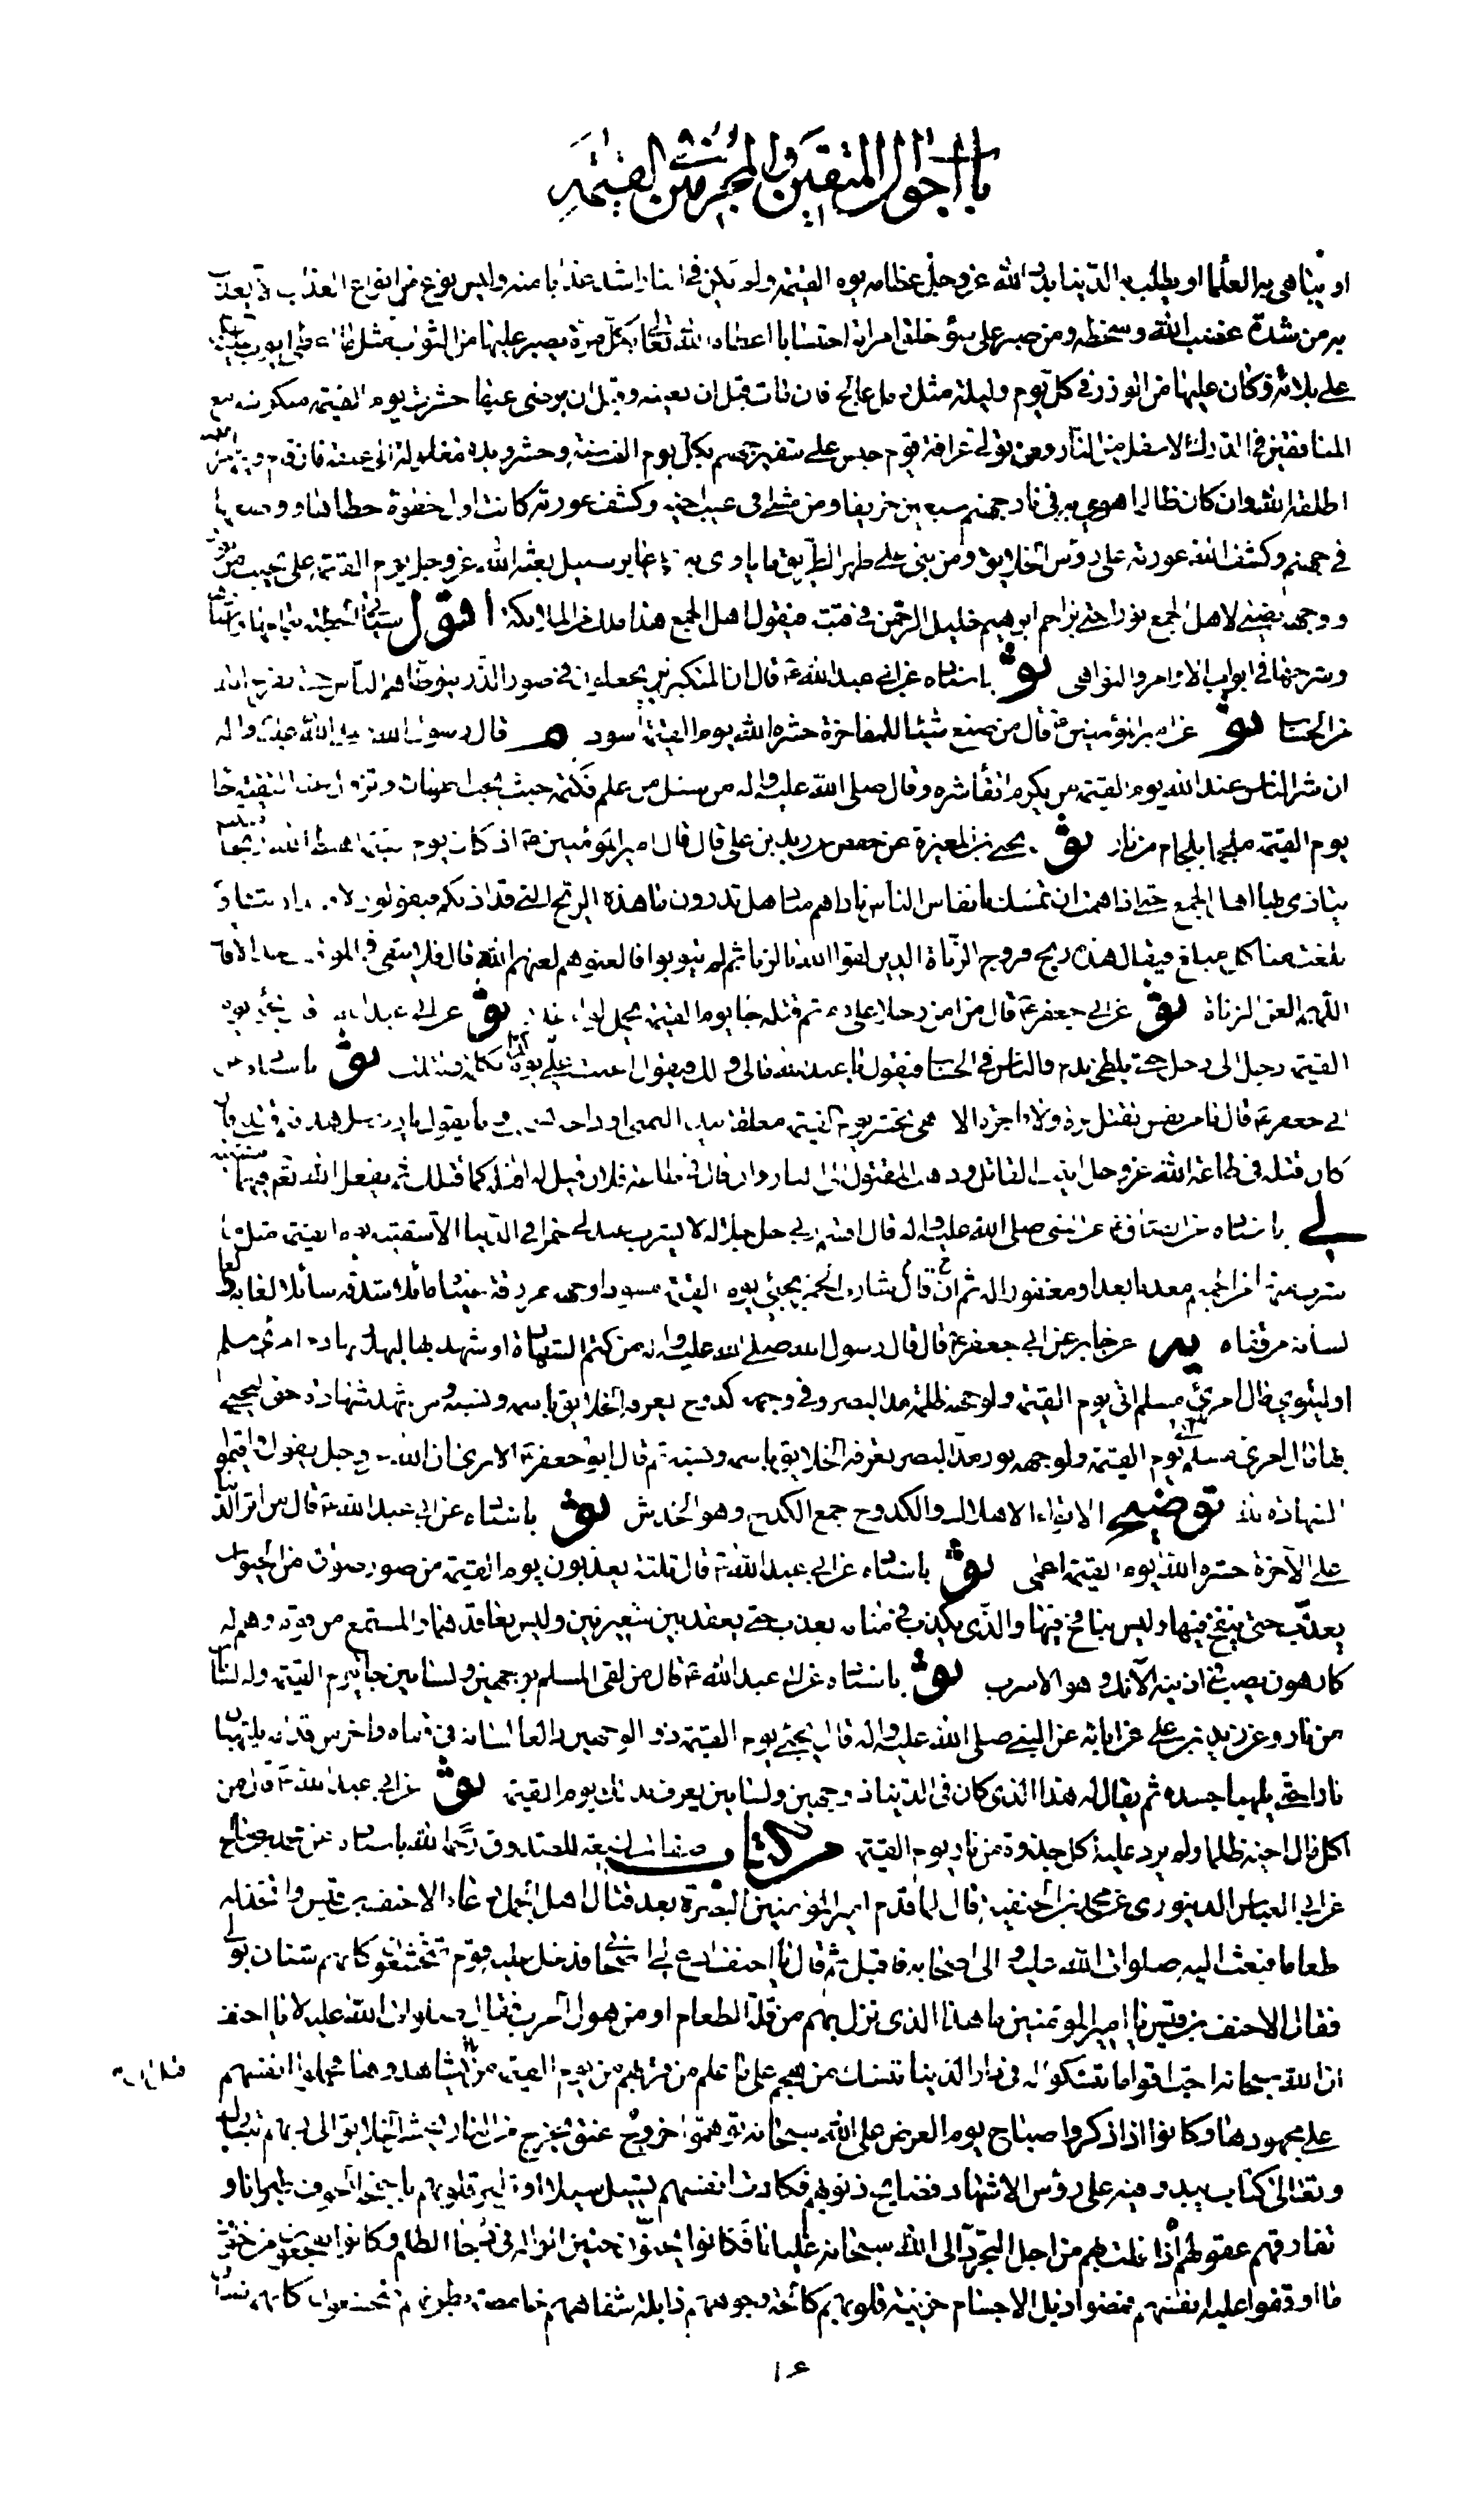 باب احوال المتقين والمجرمين في القيمة
او يباهي به العلما او يطلب به الدنيا بدد الله عز وجل عظامه يوم القيمة ولم يكن في النار اشد عذابا منه وليس نوع من انواع العذاب الا يعذب
به من شدة غضب الله وسخطه ومن صبر على سوء خلق امراته احتسابا اعطاه الله تعالى بكل مرة يصبر عليها من الثواب مثل ما اعطى ايوب
على بلائه وكان عليها من الوزر في كل يوم وليلة مثل رمل عالج فان ماتت قبل ان تعينه وقبل ان يرضى عنها حشرت يوم القيمة منكوسة مع
المنافقين في الدرك الاسفل من النار ومن تولى عرافة قوم حبس على شفير جهنم بكل يوم الف سنة وحشر ويده مغلولة الى عنقه فان قام فيهم بامر الله
اطلقه الله وان كان ظالما هوى به في نار جهنم سبعين خريفا ومن مشى في عيب اخيه وكشف عورته كانت اول خطوة خطاها ووضعها
في جهنم وكشف الله عورته على رؤس الخلايق ومن بنى على ظهر الطريق ما ياوي به عابر سبيل بعثه الله عز وجل يوم القيمة على نجيب من نور
ووجهه يضيئ لاهل الجمع نورا حتى يزاحم ابرهيم خليل الرحمن في قبته فيقول اهل الجمع هذا ملك من الملائكة اقول سياتي الخطبة بتمامها واسنادها
وشرحها في ابواب الاوامر والنواهي ثو باسناده عن ابي عبد الله ع قال ان المتكبرين يجعلون في صور الذر يتوطاهم الناس حتى يفرغ الله
من الحساب ثو عن امير المؤمنين ع قال من صنع شيئا للمفاخرة حشره الله يوم القيمة اسود م قال رسول الله صلى الله عليه واله
ان شر الناس عند الله يوم القيمة من يكرم اتقاء شره وقال صلى الله عليه واله من سئل عن علم فكتمه حيث يجب اظهاره وتزول عنه التقية جا
يوم القيمة ملجما بلجام من نار ثو يحيى بن المغيرة عن حفص عن زيد بن علي قال قال امير المؤمنين ع اذ كان يوم القيمة اهب الله ريحا منتنة
يتاذى بها اهل الجمع حتى اذا همت ان تمسك بانفاس الناس ناداهم مناد هل تدرون ما هذه الريح التي قد اذتكم فيقولون لا وقد اذتنا و
بلغت منا كل مبلغ فيقال هذه ريح فروج الزناة الذين لقوا الله بالزنا ثم لم يتوبوا فالعنوهم لعنهم الله قال فلا يبقى في الموقف احد الا قال
اللهم العن الزناة ثو عن ابي جعفر ع قال من امن رجلا على دم ثم قتله جا يوم القيمة يحمل لواء غدر ثو عن ابي عبد الله ع قال يجيء يوم
القيمة رجل الى رجل حتى يلطخه بدم والناس في الحساب فيقول يا عبد الله مالي ولك فيقول اعنت علي يوم كذا وكذا بكلمة فقتلت ثو باسناده عن
ابي جعفر ع قال ما من نفس تقتل برة ولا فاجرة الا وهي تحشر يوم القيمة متعلقة بقاتله بيده اليمنى وراسه بيده اليسرى واوداجه تشخب دما يقول يا رب سل هذا فيم قتلني فان
كان قتله في طاعة الله عز وجل اثيب القاتل وذهب بالمقتول الى النار وان قال في طاعة فلان قيل له اقتله كما قتلك ثم يفعل الله تعالى فيهما مشيته
لي باسناده عن الصادق ع عن النبي صلى الله عليه واله قال اقسم ربي جل جلاله لا يشرب عبد لي خمرا في الدنيا الا سقيته يوم القيمة مثل ما
شرب منها من الحميم معذبا بعد او مغفورا له ثم قال ان شارب الخمر يجيئ يوم القيمة مسودا وجهه مزرقة عيناه مائلا شدقه سائلا لعابه دالعا
لسانه من قفاه ير عن جابر عن ابي جعفر ع قال قال رسول الله صلى الله عليه واله من كتم الشهادة او شهد بها ليهدر بها دم امرئ مسلم
او ليتوي مال امرئ مسلم اتى يوم القيمة ولوجهه ظلمة مد البصر وفي وجهه كدوح يعرفه الخلايق باسمه ونسبه ومن شهد شهادة حق ليحيي
بها مال امرئ مسلم اتى يوم القيمة ولوجهه نور مد البصر تعرفه الخلايق باسمه ونسبه ثم قال ابو جعفر ع الا ترى ان الله عز وجل يقول واقيموا
الشهادة لله توضيح الاتواء الاهلاك والكدوح جمع الكدح وهو الخدش ثو باسناده عن ابي عبد الله ع قال من اثر الدنيا
على الآخرة حشره الله يوم القيمة اعمى ثو باسناده عن ابي عبد الله ع قال ثلثة يعذبون يوم القيمة من صور صورة من الحيوان
يعذب حتى ينفخ فيها وليس بنافخ فيها والذي يكذب في منامه يعذب حتى يعقد بين شعيرتين وليس بعاقد هما والمستمع من قوم وهم له
كارهون يصب في اذنيه الآنك وهو الاسرب ثو باسناده عن ابي عبد الله ع قال من لقي المسلم بوجهين ولسانين جا يوم القيمة وله لسانان
من نار وعن زيد بن علي عن ابائه عن النبي صلى الله عليه واله قال يجيئ يوم القيمة ذو الوجهين دالعا لسانه في قفاه واخر من قدامه يلتهبان
نارا حتى يلهبا جسده ثم يقال له هذا الذي كان في الدنيا ذا وجهين ولسانين يعرف بذلك يوم القيمة ثو عن ابي عبد الله ع قال من
اكل مال اخيه ظلما ولم يرد عليه اكل جذوة من نار يوم القيمة من كتاب صفات الشيعة للصدوق رحمه الله باسناده عن محمد بن صالح
عن ابي العباس الدينوري عن محمد بن الحنفية قال لما قدم امير المؤمنين البصرة بعد قتال اهل الجمل دعاه الاحنف بن قيس واتخذ له
طعاما فبعث اليه صلوات الله عليه والى اصحابه فاقبل ثم قال يا احنف ادع لي اصحابي فدخل عليه قوم متخشعون كانهم شنان بوالي
فقال الاحنف بن قيس يا امير المؤمنين ما هذا الذي نزل بهم من قلة الطعام او من هول الحرب فقال صلوات الله عليه لا يا احنف
ان الله سبحانه احب اقواما تنسكوا له في دار الدنيا تنسك من هجم على ما علم من قربهم من يوم القيمة من قبل ان يشاهدوها فحملوا انفسهم
على مجهودها وكانوا اذا ذكروا صباح يوم العرض على الله سبحانه توهموا خروج عنق يخرج من النار يحشر الخلايق الى ربهم تبارك
وتعالى وكتاب يبدو فيه على رؤس الاشهاد فضايح ذنوبهم فكادت انفسهم تسيل سيلا او تطير قلوبهم باجنحة الخوف طيرانا و
تفارقهم عقولهم اذا غلت بهم من اجل التجرد الى الله سبحانه غليانا فكانوا يحنون حنين الواله في دجى الظلم وكانوا يفجعون من خوف
ما اوقفوا عليه انفسهم فمضوا ذبل الاجسام حزينة قلوبهم كالحة وجوههم ذابلة شفاههم خامصة بطونهم متخشعون كانهم شنان
١٤